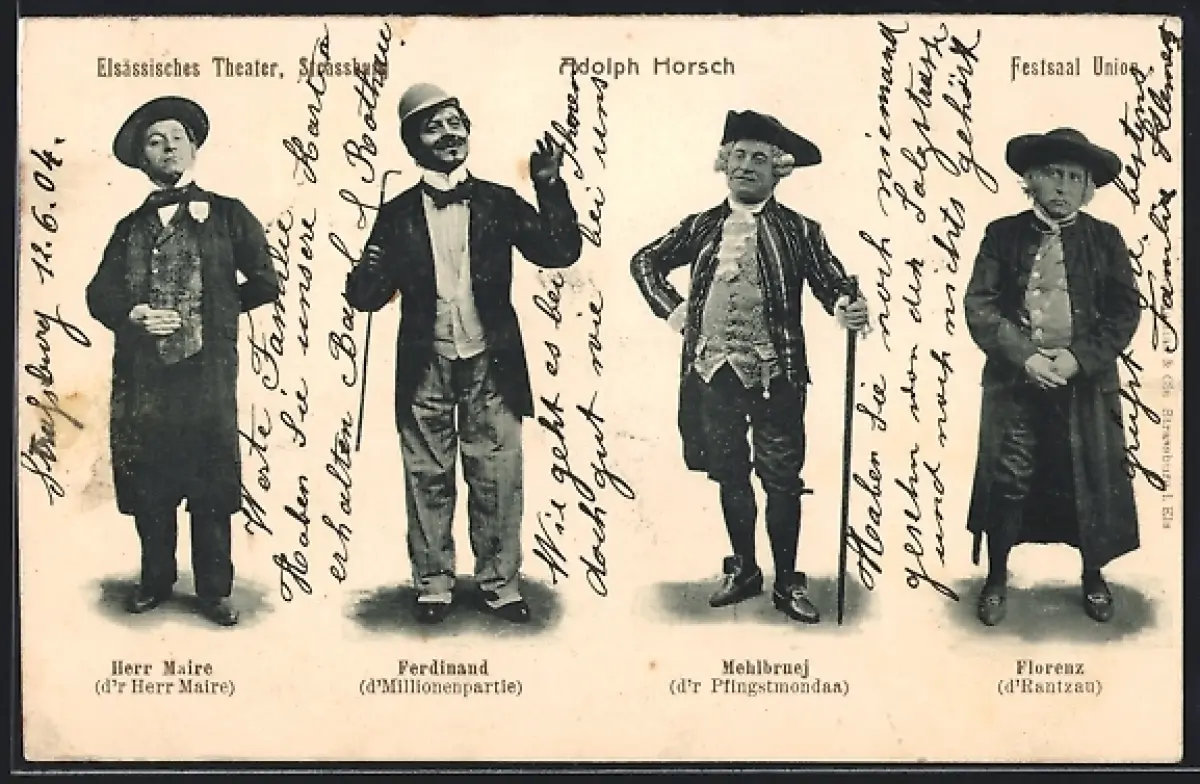 Elsässisches Theater, Strassburg
Adolph Horsch
Festsaal Union
Straßburg 12.6.04.
Werte Familie
Haben Sie unsere Karte
erhalten
Wie geht es bei Ihnen
doch gut wie bei uns
Haben Sie noch niemand
gesehn von der Salzstrass
und noch nichts gehört
grüsst Sie bestens
Familie Klemenz
& Cie, Strassburg i. Els
Herr Maire
(d'r Herr Maire)
Ferdinand
(d'Millionenpartie)
Mehlbruej
(d'r Pfingstmondaa)
Florenz
(d'Rantzau)